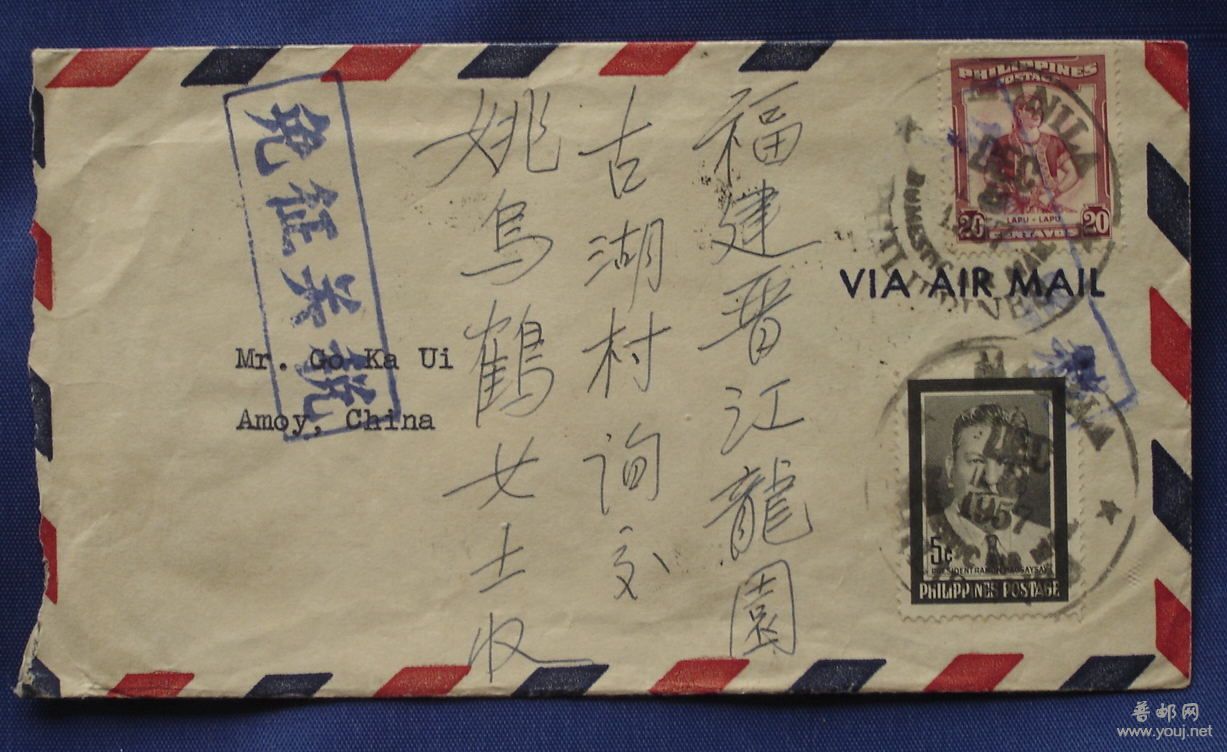 PHILIPPINES
POSTAGE
LAPU-LAPU
20 CENTAVOS 20
MANILA
DEC
VIA AIR MAIL
MANILA
DEC
1957
5c
PRESIDENT RAMON MAGSAYSAY
PHILIPPINES POSTAGE
福建晋江龍園
古湖村询交
姚烏鶴女士收
免征茶税
Mr. Go Ka Ui
Amoy, China
普邮网
www.youj.net